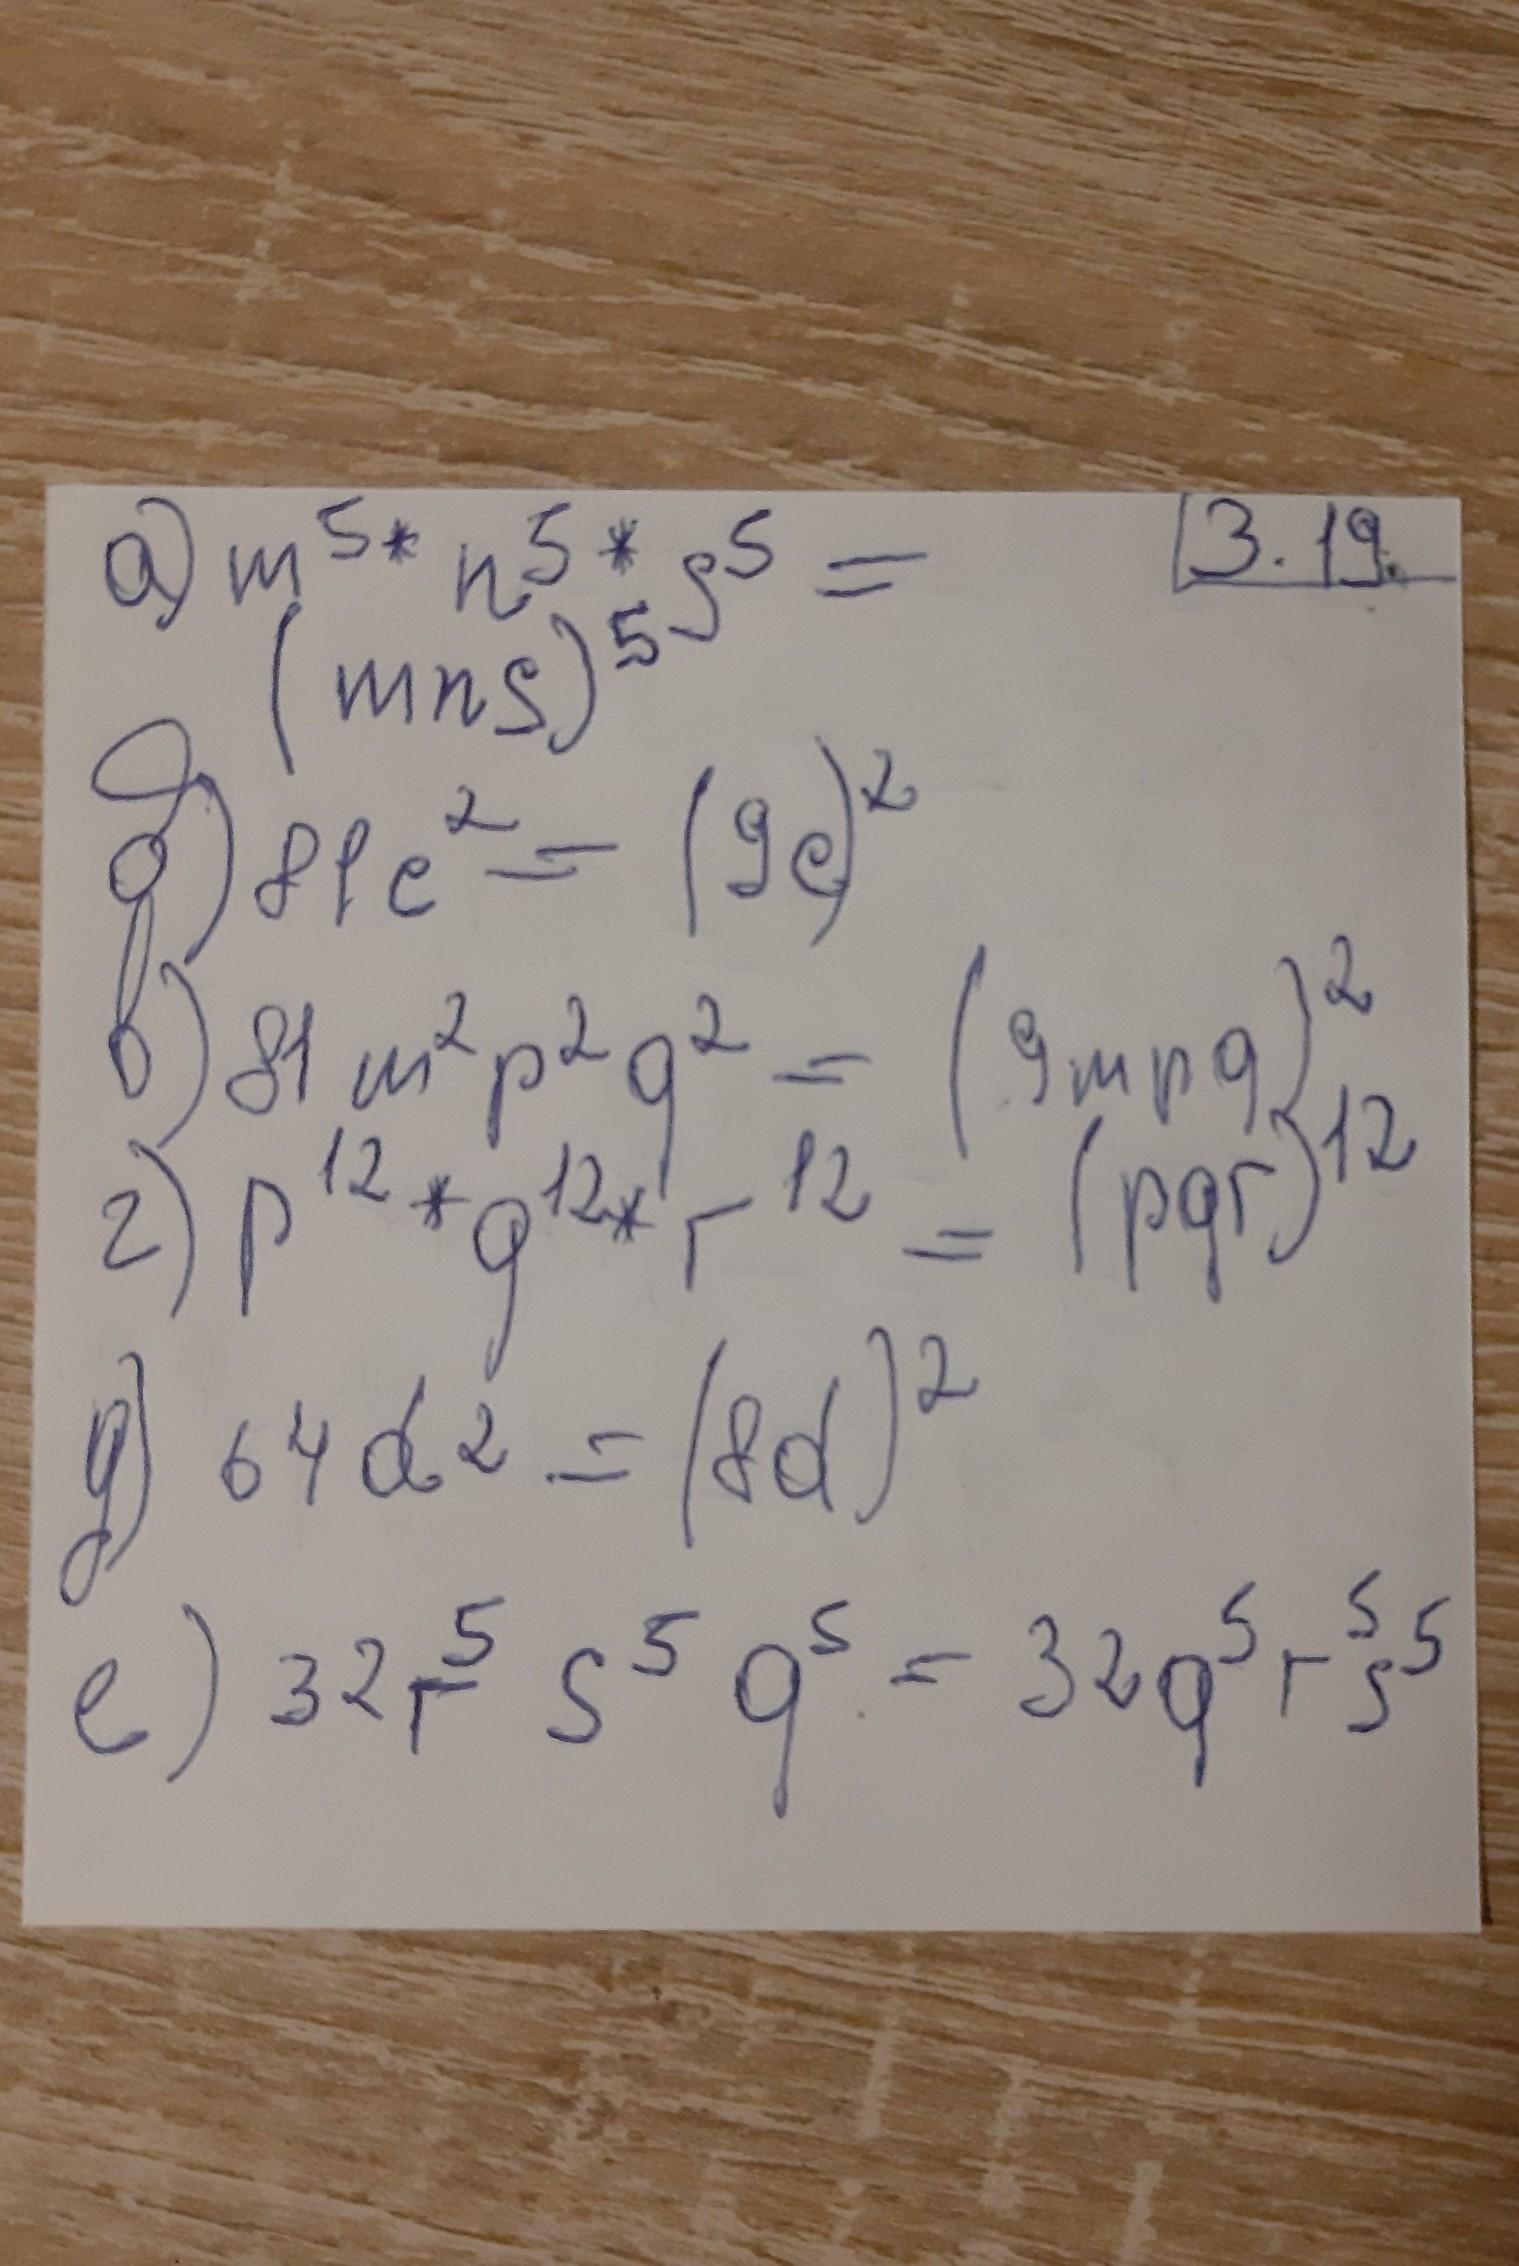 а) m⁵* n⁵* s⁵ = 3.19.
(mns)⁵
б) 81c² = (9c)²
в) 81 m² p² q² = (9mpq)²
г) p¹² * q¹² * r¹² = (pqr)¹²
д) 64d² = (8d)²
е) 32r⁵ s⁵ q⁵ = 32q⁵ r⁵ s⁵